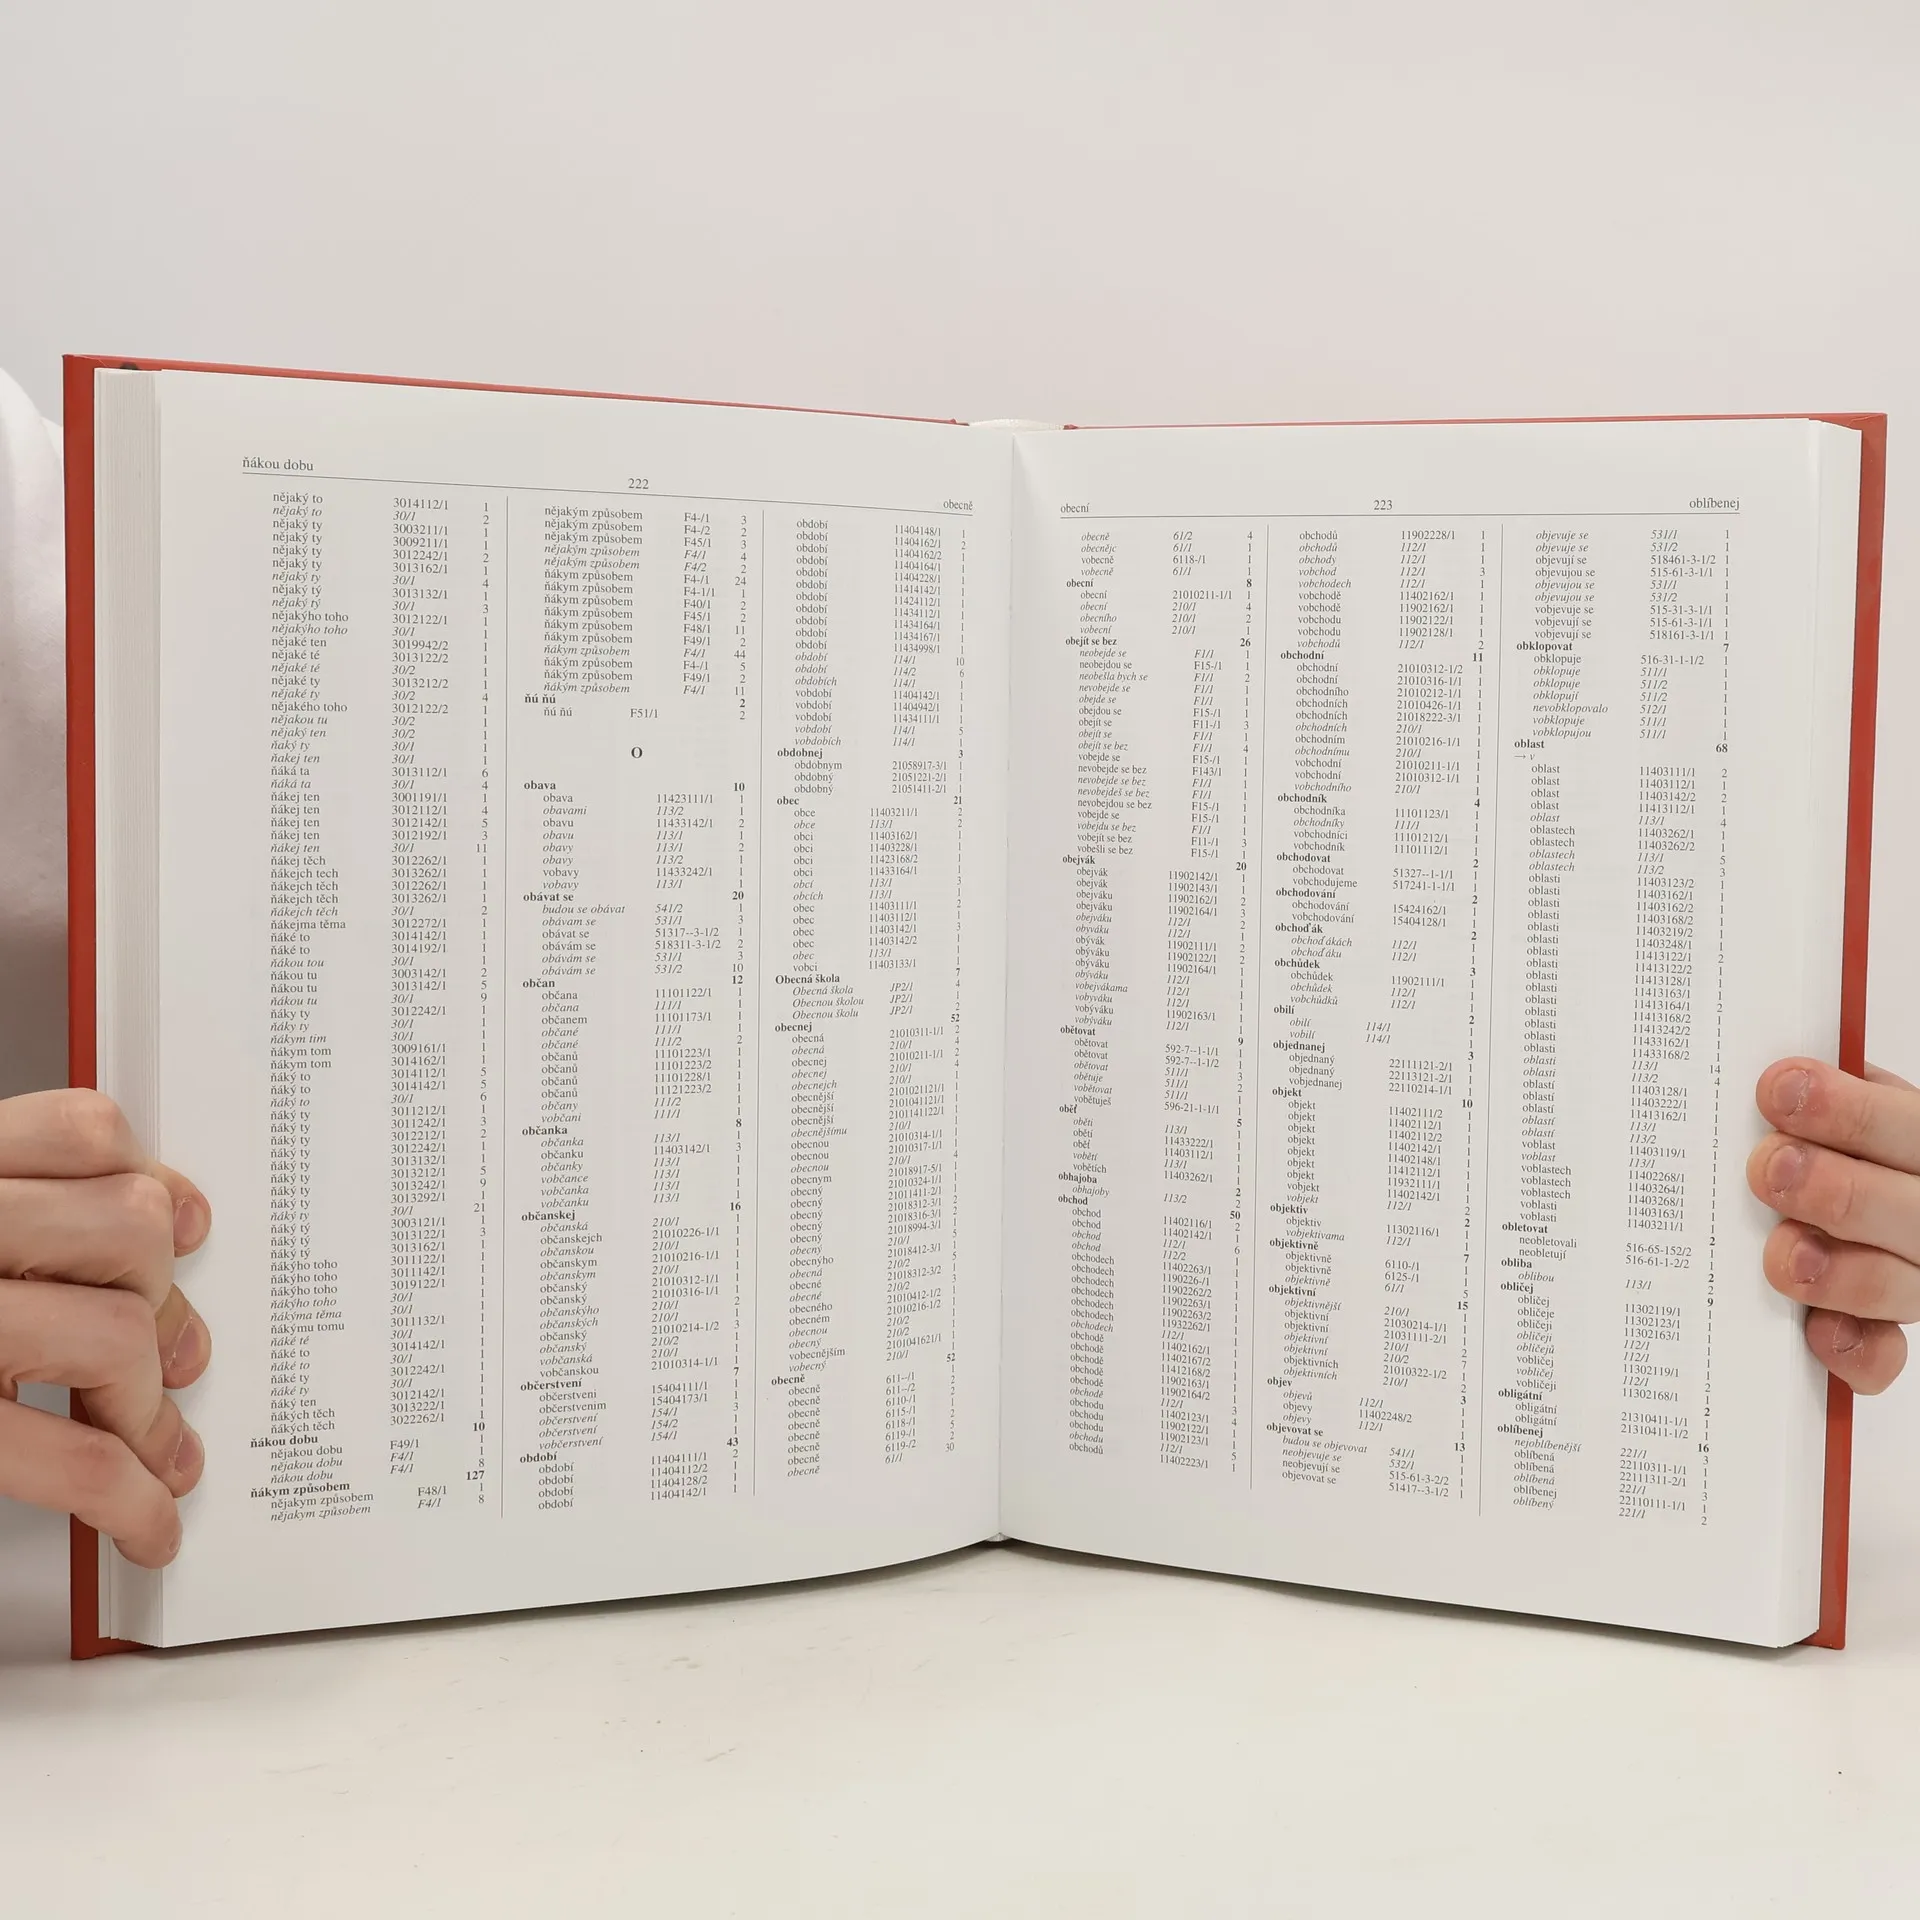 ňákou dobu
222
obecně
nějaký to 3014112/1 1
nějaký to 30/1 2
nějaký ty 3003211/1 1
nějaký ty 3009211/1 1
nějaký ty 3012242/1 2
nějaký ty 3013162/1 1
nějaký ty 30/1 4
nějaký tý 3013132/1 1
nějaký tý 30/1 3
nějakýho toho 3012122/1 1
nějakýho toho 30/1 1
nějaké ten 3019942/2 1
nějaké té 3013122/2 1
nějaké té 30/2 1
nějaké ty 3013212/2 1
nějaké ty 30/2 4
nějakého toho 3012122/2 1
nějakou tu 30/2 1
nějaký ten 30/2 1
ňaký ty 30/1 1
ňakej ten 30/1 1
ňáká ta 3013112/1 6
ňáká ta 30/1 4
ňákej ten 3001191/1 1
ňákej ten 3012112/1 4
ňákej ten 3012142/1 5
ňákej ten 3012192/1 3
ňákej ten 30/1 11
ňákej těch 3012262/1 1
ňákejch tech 3013262/1 1
ňákejch těch 3012262/1 1
ňákejch těch 3013262/1 1
ňákejch těch 30/1 2
ňákejma těma 3012272/1 1
ňáké to 3014142/1 1
ňáké to 3014192/1 1
ňákou tou 30/1 1
ňákou tu 3003142/1 2
ňákou tu 3013142/1 5
ňákou tu 30/1 9
ňáky ty 3012242/1 1
ňáky ty 30/1 1
ňákym tim 30/1 1
ňákym tom 3009161/1 1
ňákym tom 3014162/1 1
ňáký to 3014112/1 5
ňáký to 3014142/1 5
ňáký to 30/1 6
ňáký ty 3011212/1 1
ňáký ty 3011242/1 3
ňáký ty 3012212/1 2
ňáký ty 3012242/1 1
ňáký ty 3013132/1 1
ňáký ty 3013212/1 5
ňáký ty 3013242/1 9
ňáký ty 3013292/1 1
ňáký ty 30/1 21
ňáký tý 3003121/1 1
ňáký tý 3013122/1 3
ňáký tý 3013162/1 1
ňákýho toho 3011122/1 1
ňákýho toho 3011142/1 1
ňákýho toho 3019122/1 1
ňákýho toho 30/1 1
ňákýma těma 30/1 1
ňákýmu tomu 3011132/1 1
ňáké té 30/1 1
ňáké to 3014142/1 1
ňáké to 30/1 1
ňáké ty 3012242/1 1
ňáké ty 30/1 1
ňáký ten 3012142/1 1
ňákých těch 3013222/1 1
ňákých těch 3022262/1 1
ňákou dobu 10
nějakou dobu F49/1 1
nějakou dobu F4/1 1
ňákou dobu F4/1 8
ňákym způsobem 127
nějakym způsobem F48/1 1
nějakym způsobem F4/1 8
nějakým způsobem F4-/1 3
nějakým způsobem F4-/2 2
nějakým způsobem F45/1 3
nějakým způsobem F4/1 4
nějakým způsobem F4/2 2
ňákym způsobem F4-/1 24
ňákym způsobem F4-1/1 1
ňákym způsobem F40/1 2
ňákym způsobem F45/1 2
ňákym způsobem F48/1 11
ňákym způsobem F49/1 2
ňákym způsobem F4/1 44
ňákým způsobem F4-/1 5
ňákým způsobem F49/1 2
ňákým způsobem F4/1 11
ňú ňú 2
ňú ňú F51/1 2
O
obava 10
obava 11423111/1 1
obavami 113/2 1
obavu 11433142/1 2
obavu 113/1 1
obavy 113/1 2
obavy 113/2 1
vobavy 11433242/1 1
vobavy 113/1 1
obávat se 20
budou se obávat 541/2 1
obávam se 531/1 3
obávat se 51317--3-1/2 1
obávám se 518311-3-1/2 2
obávám se 531/1 3
obávám se 531/2 10
občan 12
občana 11101122/1 1
občana 111/1 1
občanem 11101173/1 1
občané 111/1 1
občané 111/2 2
občanů 11101223/1 1
občanů 11101223/2 1
občanů 11101228/1 1
občanů 11121223/2 1
občany 111/2 1
vobčani 111/1 1
občanka 8
občanka 113/1 1
občanku 11403142/1 3
občanky 113/1 1
vobčance 113/1 1
vobčanka 113/1 1
vobčanku 113/1 1
občanskej 16
občanská 210/1 1
občanskejch 21010226-1/1 1
občanskou 210/1 1
občanskym 21010216-1/1 1
občanskym 210/1 1
občanský 21010312-1/1 1
občanský 21010316-1/1 1
občanskýho 210/1 2
občanských 210/1 1
občanský 21010214-1/2 3
občanský 210/2 1
vobčanská 210/1 1
vobčanskou 21010314-1/1 1
občerstvení 7
občerstveni 15404111/1 1
občerstvenim 15404173/1 1
občerstvení 154/1 3
občerstvení 154/2 1
vobčerstvení 154/1 1
období 43
období 11404111/1 2
období 11404112/2 1
období 11404128/2 1
období 11404142/1 1
období 11404148/1 1
období 11404162/1 2
období 11404162/2 1
období 11404164/1 1
období 11404228/1 1
období 11414142/1 1
období 11424112/1 1
období 11434112/1 1
období 11434164/1 1
období 11434167/1 1
období 11434998/1 1
období 114/1 10
období 114/2 6
obdobích 114/1 1
vobdobí 11404142/1 1
vobdobí 11404942/1 1
vobdobí 11434111/1 1
vobdobí 114/1 5
vobdobích 114/1 1
obdobnej 3
obdobnym 21058917-3/1 1
obdobný 21051221-2/1 1
obdobný 21051411-2/1 1
obec 21
obce 11403211/1 2
obce 113/1 2
obci 11403162/1 1
obci 11403228/1 1
obci 11423168/2 1
obci 11433164/1 1
obcí 113/1 3
obcích 113/1 1
obec 11403111/1 2
obec 11403112/1 1
obec 11403141/1 3
obec 11403142/2 1
obec 113/1 1
vobci 11403133/1 1
Obecná škola 7
Obecná škola JP2/1 4
Obecnou školou JP2/1 1
Obecnou školu JP2/1 2
obecnej 52
obecná 21010311-1/1 2
obecná 210/1 4
obecnej 21010211-1/1 2
obecnej 210/1 4
obecnejch 210/1 1
obecnější 2101021121/1 1
obecnější 2101041121/1 1
obecnější 2101141122/1 1
obecnějšímu 210/1 1
obecnou 21010314-1/1 1
obecnou 21010317-1/1 1
obecnou 210/1 4
obecnym 21018917-5/1 1
obecný 21010324-1/1 1
obecný 21011411-2/1 1
obecný 21018312-3/1 2
obecný 21018316-3/1 2
obecný 21018994-3/1 1
obecný 210/1 5
obecnýho 21018412-3/1 1
obecná 210/2 5
obecné 21018312-3/2 1
obecné 210/2 3
obecného 21010412-1/2 1
obecném 21010216-1/2 1
obecnou 210/2 1
obecný 210/2 1
vobecnějším 2101041621/1 1
vobecný 210/1 1
obecně 52
obecně 611--/1 2
obecně 611--/2 2
obecně 6110-/1 1
obecně 6115-/1 2
obecně 6118-/1 5
obecně 6119-/1 2
obecně 6119-/2 2
obecně 61/1 30
obecní
223
oblíbenej
obecně 61/2 4
obecnějc 61/1 1
vobecně 6118-/1 1
vobecně 61/1 1
obecní 8
obecní 21010211-1/1 1
obecní 210/1 4
obecního 210/1 2
vobecní 210/1 1
obejít se bez 26
neobejde se F1/1 1
neobejdou se F15-/1 1
neobešla bych se F1/1 2
nevobejde se F1/1 1
obejde se F1/1 1
obejdou se F15-/1 1
obejít se F11-/1 3
obejít se F1/1 1
obejít se bez F1/1 4
vobejde se F15-/1 1
nevobejde se bez F143/1 1
nevobejde se bez F1/1 1
nevobejdeš se bez F1/1 1
nevobejdou se bez F15-/1 1
vobejde se F15-/1 1
vobejdu se bez F1/1 1
vobejít se bez F11-/1 3
vobešli se bez F15-/1 1
obejvák 20
obejvák 11902142/1 1
obejvák 11902143/1 1
obejváku 11902162/1 2
obejváku 11902164/1 3
obejváku 112/1 2
obyváku 112/1 1
obývák 11902111/1 2
obýváku 11902122/1 2
obýváku 11902164/1 1
obýváku 112/1 1
vobejvákama 112/1 1
vobyváku 112/1 1
vobýváku 11902163/1 1
vobýváku 112/1 1
obětovat 9
obětovat 592-7--1-1/1 1
obětovat 592-7--1-1/2 1
obětovat 511/1 3
obětuje 511/1 2
vobětovat 511/1 1
vobětuješ 596-21-1-1/1 1
oběť 5
oběti 113/1 1
obětí 11433222/1 1
oběť 11403112/1 1
vobětí 113/1 1
vobětích 11403262/1 1
obhajoba 2
obhajoby 113/2 2
obchod 50
obchod 11402116/1 2
obchod 11402142/1 1
obchod 112/1 6
obchod 112/2 1
obchodech 11402263/1 1
obchodech 1190226-/1 1
obchodech 11902262/2 1
obchodech 11902263/1 1
obchodech 11932262/1 1
obchodech 112/1 1
obchodě 11402162/1 1
obchodě 11402167/2 1
obchodě 11412168/2 1
obchodě 11902163/1 1
obchodě 11902164/2 1
obchodě 112/1 3
obchodu 11402123/1 4
obchodu 11902122/1 1
obchodu 11902123/1 1
obchodu 112/1 5
obchodů 11402223/1 1
obchodů 11902228/1 1
obchodů 112/1 1
obchody 112/1 1
vobchod 112/1 3
vobchodech 112/1 1
vobchodě 11402162/1 1
vobchodě 11902162/1 1
vobchodu 11902122/1 1
vobchodu 11902128/1 1
vobchodů 112/1 2
obchodní 11
obchodní 21010312-1/2 1
obchodní 21010316-1/1 1
obchodního 21010212-1/1 1
obchodních 21010426-1/1 1
obchodních 21018222-3/1 1
obchodních 210/1 1
obchodním 21010216-1/1 1
obchodnímu 210/1 1
vobchodní 21010211-1/1 1
vobchodní 21010312-1/1 1
vobchodního 210/1 1
obchodník 4
obchodníka 11101123/1 1
obchodníky 111/1 1
vobchodníci 11101212/1 1
vobchodník 11101112/1 1
obchodovat 2
obchodovat 51327--1-1/1 1
vobchodujeme 517241-1-1/1 1
obchodování 2
obchodování 15424162/1 1
vobchodování 15404128/1 1
obchoďák 2
obchoďákách 112/1 1
obchoďáku 112/1 1
obchůdek 3
obchůdek 11902111/1 1
obchůdek 112/1 1
vobchůdků 112/1 1
obilí 2
obilí 114/1 1
vobilí 114/1 1
objednanej 3
objednaný 22111121-2/1 1
objednaný 22113121-2/1 1
vobjednanej 22110214-1/1 1
objekt 10
objekt 11402111/2 1
objekt 11402112/1 1
objekt 11402112/2 1
objekt 11402142/1 1
objekt 11402148/1 1
objekt 11412112/1 1
objekt 11932111/1 1
vobjekt 11402142/1 1
vobjekt 112/1 2
objektiv 2
objektiv 11302116/1 1
vobjektivama 112/1 1
objektivně 7
objektivně 6110-/1 1
objektivně 6125-/1 1
objektivně 61/1 5
objektivní 15
objektivnější 210/1 1
objektivní 21030214-1/1 1
objektivní 21031111-2/1 1
objektivní 210/1 2
objektivní 210/2 7
objektivních 21010322-1/2 1
objektivních 210/1 2
objev 3
objevů 112/1 1
objevy 11402248/2 1
objevy 112/1 1
objevovat se 13
budou se objevovat 541/1 1
neobjevuje se 532/1 1
neobjevují se 515-61-3-2/2 1
objevovat se 51417--3-1/2 1
objevuje se 531/1 1
objevuje se 531/2 1
objevují se 518461-3-1/2 1
objevujou se 515-61-3-1/1 1
objevujou se 531/1 1
objevujou se 531/2 1
vobjevuje se 515-31-3-1/1 1
vobjevují se 515-61-3-1/1 1
vobjevují se 518161-3-1/1 1
obklopovat 7
obklopuje 516-31-1-1/2 1
obklopuje 511/1 1
obklopuje 511/2 1
obklopují 511/2 1
nevobklopovalo 512/1 1
vobklopuje 511/1 1
vobklopujou 511/1 1
oblast 68
→ v
oblast 11403111/1 2
oblast 11403112/1 1
oblast 11403142/2 2
oblast 11413112/1 1
oblast 113/1 4
oblastech 11403262/1 1
oblastech 11403262/2 1
oblastech 113/1 5
oblastech 113/2 3
oblasti 11403123/2 1
oblasti 11403162/1 1
oblasti 11403162/2 1
oblasti 11403168/2 1
oblasti 11403219/2 1
oblasti 11403248/1 1
oblasti 11413122/1 2
oblasti 11413122/2 1
oblasti 11413128/1 1
oblasti 11413163/1 1
oblasti 11413164/1 2
oblasti 11413168/2 1
oblasti 11413242/2 1
oblasti 11433162/1 1
oblasti 11433168/2 1
oblasti 113/1 14
oblasti 113/2 4
oblastí 11403128/1 1
oblastí 11403222/1 1
oblastí 11413162/1 1
oblastí 113/1 1
oblastí 113/2 2
voblast 11403119/1 1
voblast 113/1 1
voblastech 11402268/1 1
voblastech 11403264/1 1
voblastech 11403268/1 1
voblasti 11403163/1 1
voblasti 11403211/1 1
obletovat 2
neobletovali 516-65-152/2 1
neobletují 516-61-1-2/2 1
obliba 2
oblibou 113/1 2
obličej 9
obličej 11302119/1 1
obličeje 11302123/1 1
obličeji 11302163/1 1
obličeji 112/1 1
obličejů 112/1 1
vobličej 11302119/1 1
vobličej 112/1 2
vobličeji 11302168/1 1
obligátní 2
obligátní 21310411-1/1 1
obligátní 21310411-1/2 1
oblíbenej 16
nejoblíbenější 221/1 3
oblíbená 22110311-1/1 1
oblíbená 22111311-2/1 1
oblíbená 221/1 3
oblíbenej 22110111-1/1 1
oblíbený 221/1 2